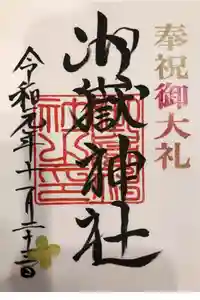 奉祝御大礼
御嶽神社
令和元年十一月二十三日